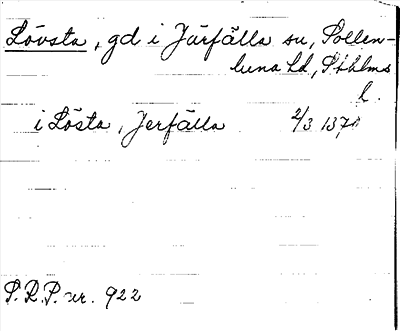 Lövsta, gd i Järfälla sn, Sollen-
tuna hd, Sthlms
l.
i Lösta, Jerfälla 2/3 1370
S.R.P. nr. 922